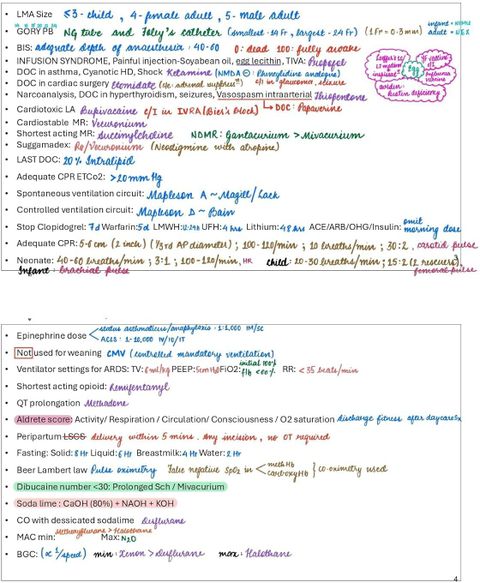 LMA Size ≤3 - child , 4 - female adult , 5 - male adult
GORY PB NG tube and Foley's catheter (smallest - 14 Fr , largest - 24 Fr) (1 Fr = 0.3 mm) infant = adult =
BIS: adequate depth of anaesthesia : 40-60 0: dead 100: fully awake
INFUSION SYNDROME, Painful injection-Soyabean oil, egg lecithin, TIVA: Propofol
Egg
biotin deficiency
DOC in asthma, Cyanotic HD, Shock Ketamine (NMDA ⊖ : Phencyclidine analogue)
DOC in cardiac surgery Etomidate (s/e : adrenal suppresⁿ) c/i in glaucoma, seizure
Narcoanalysis, DOC in hyperthyroidism, seizures, Vasospasm intraarterial Thiopentone
↳ DOC : Papaverine
Cardiotoxic LA Bupivacaine c/i in IVRA (Bier's block)
Cardiostable MR: Vecuronium
Shortest acting MR: Succinylcholine NDMR: Gantacurium > Mivacurium
Suggamadex: Ro/Vecuronium (Neostigmine with atropine)
LAST DOC: 20% Intralipid
Adequate CPR ETCo2: >20mm Hg
Spontaneous ventilation circuit: Mapleson A ~ Magill/Lack
Controlled ventilation circuit: Mapleson D ~ Bain
Stop Clopidogrel: 7d Warfarin: 5d LMWH: 12-24h UFH: 4 hrs Lithium: 48 hrs ACE/ARB/OHG/Insulin: omit morning dose
Adequate CPR: 5-6 cm (2 inch) (1/3rd AP diameter) ; 100-120/min ; 10 breaths/min ; 30:2 , carotid pulse
Neonate: 40-60 breaths/min ; 3:1 ; 100-120/min, HR child: 20-30 breaths/min ; 15:2 (2 rescuers),
Infant : brachial pulse femoral pulse
Epinephrine dose status asthmaticus/anaphylaxis - 1:1,000 IM/SC
ACLS : 1:10,000 IV/IO/IT
Not used for weaning CMV (controlled mandatory ventilation)
Ventilator settings for ARDS: TV: 6ml/kg PEEP: 5cm H2O FiO2: initial 100% f/b <60% RR: < 35 beats/min
Shortest acting opioid: Remifentanyl
QT prolongation Methadone
Aldrete score: Activity/ Respiration / Circulation/ Consciousness / O2 saturation discharge fitness after daycare Sx
Peripartum LSCS delivery within 5 mins. Any incision, no OT required
Fasting: Solid: 8 Hr Liquid: 6 Hr Breastmilk: 4 Hr Water: 2 Hr
Beer Lambert law Pulse oximetry False negative SpO2 in methHb carboxyHb } co-oximetry used
Dibucaine number <30: Prolonged Sch / Mivacurium
Soda lime : CaOH (80%) + NAOH + KOH
CO with dessicated sodalime Desflurane
MAC min: Methoxyflurane > Halothane Max: N2O
BGC: (∝ 1/speed) min : Xenon > Desflurane max : Halothane
4